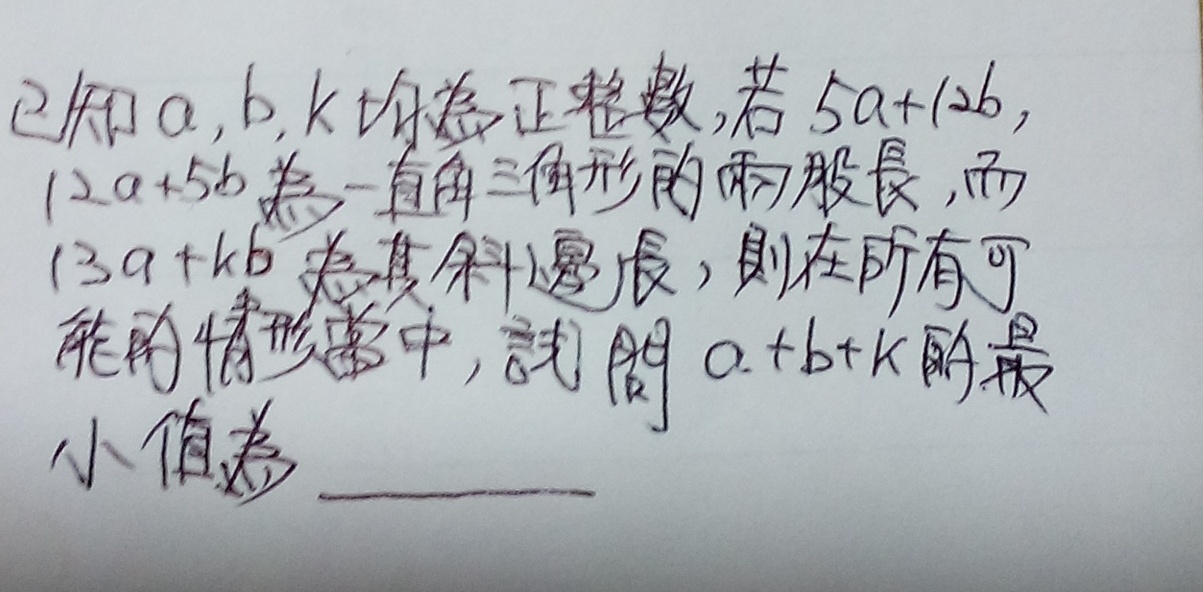 已知a,b,k均為正整數,若5a+12b,
12a+5b為一直角三角形的兩股長,而
13a+kb為其斜邊長,則在所有可
能的情形當中,試問a+b+k的最
小值為